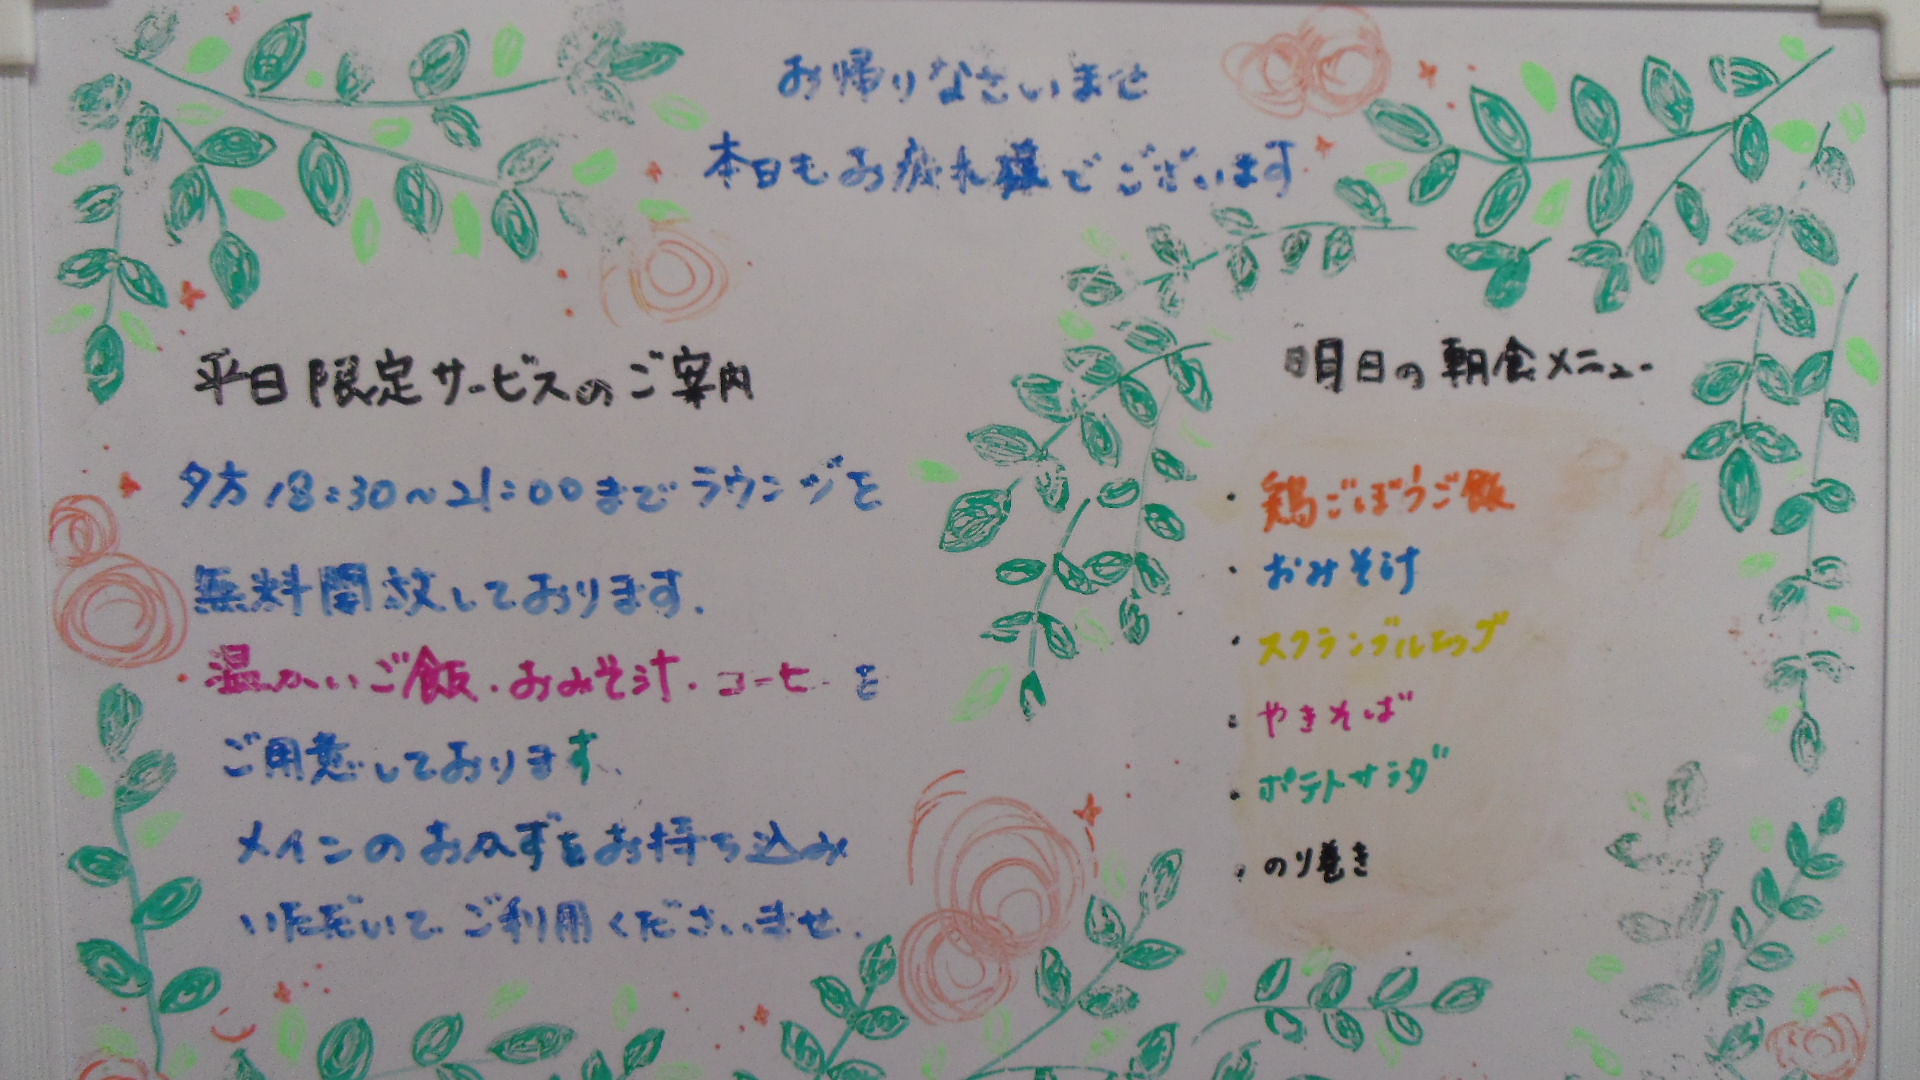 お帰りなさいませ
本日もお疲れ様でございます
平日限定サービスのご案内
夕方18:30~21:00までラウンジを
無料開放しております.
・温かいご飯・おみそ汁・コーヒーを
ご用意しております.
メインのおかずをお持ち込み
いただいてご利用くださいませ.
明日の朝食メニュー
・鶏ごぼうご飯
・おみそ汁
・スクランブルエッグ
・やきそば
・ポテトサラダ
・のり巻き